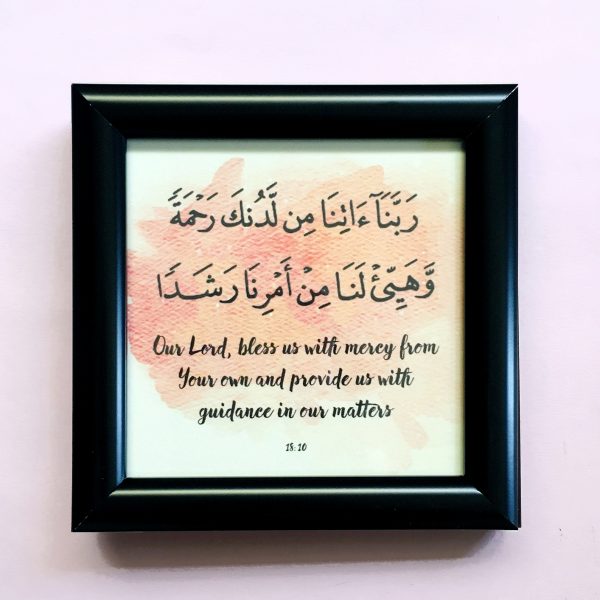 رَبَّنَآ ءَاتِنَا مِن لَّدُنكَ رَحْمَةً
وَهَيِّئْ لَنَا مِنْ أَمْرِنَا رَشَدًا
Our Lord, bless us with mercy from
Your own and provide us with
guidance in our matters
18:10